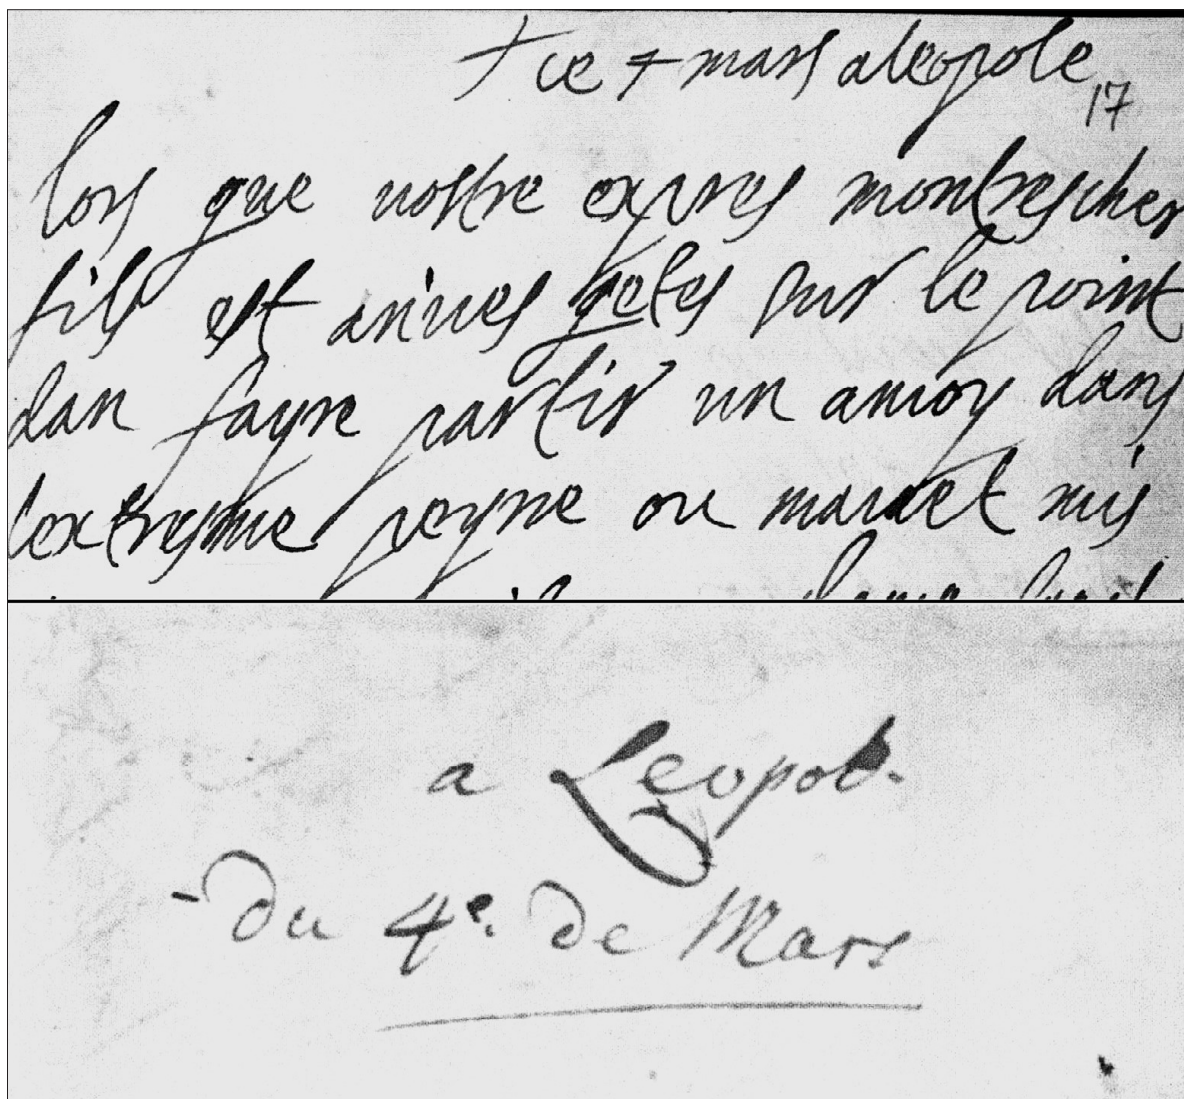 + ce 4 mars aleopole
17
lors que vostre expres montrescher
fils est arivés getes sur le point
dan fayre partir un anvoy dans
lextresme peyne ou mavet mis
a Leopol.
- du 4e. de Mars